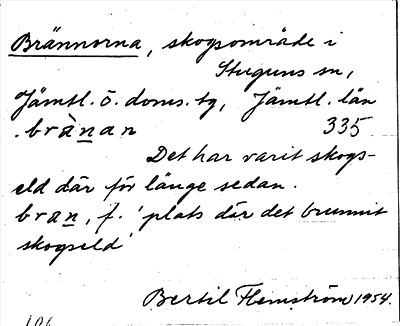 Brännorna, skogsområde i
Stuguns sn,
Jämtl. ö. doms. tg, Jämtl. län
.brànan 335
Det har varit skogs-
eld där för länge sedan.
bran, f. 'plats där det brunnit
skogseld'
Bertil Flemström 1954.
106